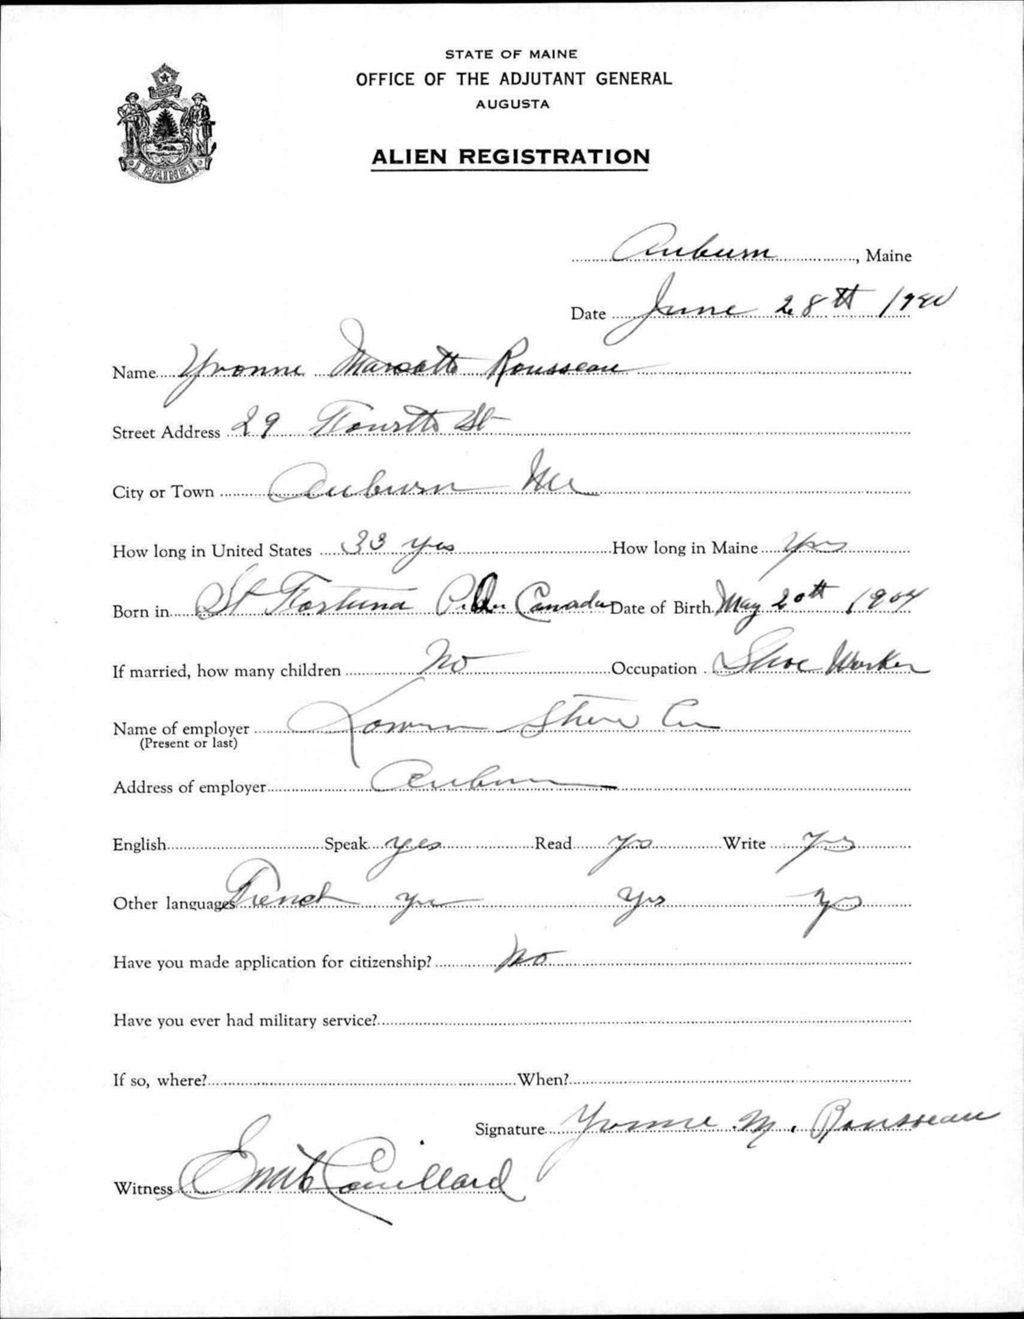 STATE OF MAINE
OFFICE OF THE ADJUTANT GENERAL
AUGUSTA
ALIEN REGISTRATION
MAINE
Auburn, Maine
Date June 28th 1940
Name Yvonne Marcotte Rousseau
Street Address 29 Fourth St
City or Town Auburn Me
How long in United States 33 yes How long in Maine Yrs
Born in St Fortuna P. Que Canada Date of Birth May 20th 1904
If married, how many children No Occupation Shoe Worker
Name of employer Shoe Co
(Present or last)
Address of employer Auburn
English Speak yes Read yes Write yes
Other languages French yes yes yes
Have you made application for citizenship? No
Have you ever had military service?
If so, where? When?
Signature Yvonne M. Rousseau
Witness Couillard